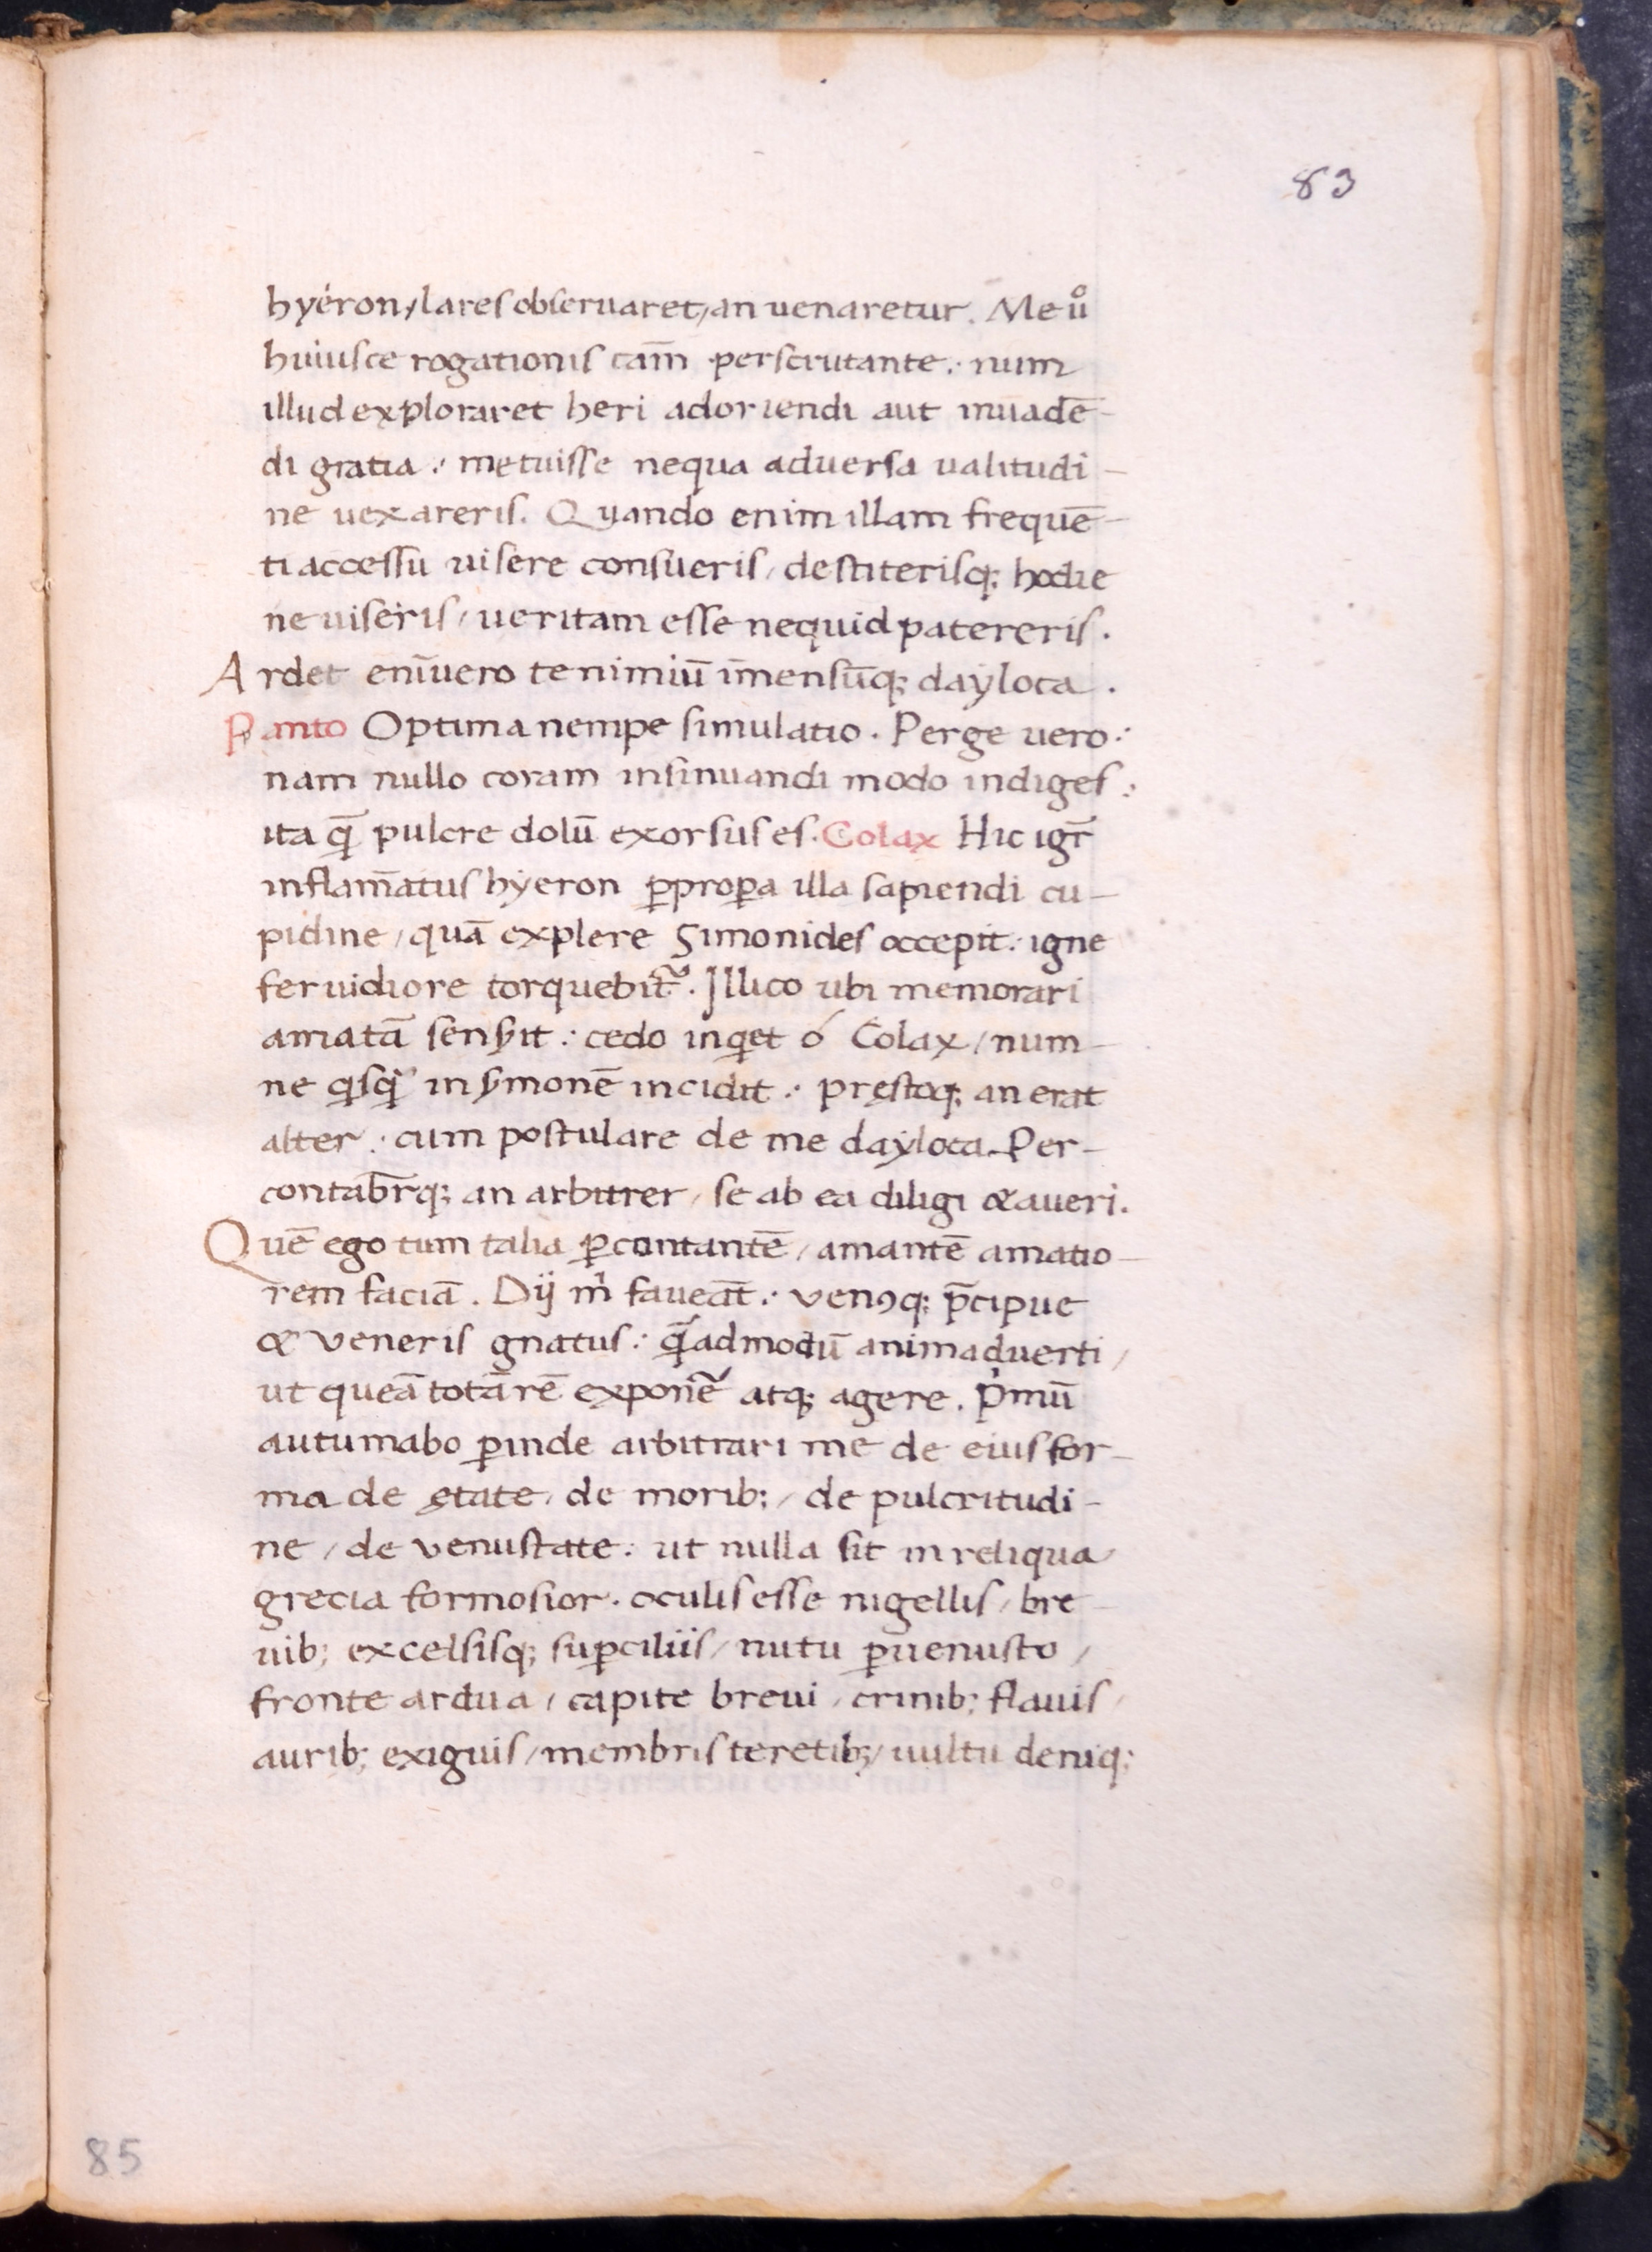 83
hyéron / lares obseruaret / an uenaretur. Me uº
huiusce rogationis cam̄ perscrutante .· num
illud exploraret heri adoriendi aut inuadē-
di gratia .· metuisse nequa aduersa ualitudi-
ne uexareris. Quando enim illam frequē-
ti accessu uisere consueris / destiterisq; hodie
ne uiseris / ueritam esse nequid patereris.
Ardet enīuero te nimiū īmensūq; daÿloca.
Panto Optima nempe simulatio. Perge uero .·
nam nullo coram insinuandi modo indiges .·
ita q̄ pulcre dolū exorsus es. Colax Hic igr̄
inflam̄atus hÿeron ꝑproꝑa illa sapiendi cu-
pidine / quā explere Simonides occepit .· igne
feruidiore torquebit᷑. Illico ubi memorari
amatā sensyt .· cedo inqet ó Colax / num-
ne qisqi in symonē incidit .· pręstoq; an erat
alter .· cum postulare de me daÿloca. Per-
contab̄rq; an arbitrer / se ab ea diligi & aueri.
Quē ego tum talia ꝑcontantē / amantē amatio-
rem faciā. Dij m̍ faueāt .· venꝯq; p̄cipue
& veneris gnatus .· q̄admodū animaduerti /
ut queā totā rē exponē atq; agere. pi̍mū
autumabo ꝑinde arbitrari me de eius for-
ma de ętate / de morib; / de pulcritudi-
ne / de venustate .· ut nulla sit in reliqua
grecia formosior. oculis esse nigellis / bre-
uib; excelsisq; suꝑciliis / nutu ꝑuenusto /
fronte ardua / capite breui / crinib; flauis /
aurib; exiguis / membris teretib; / uultu deniq;
85